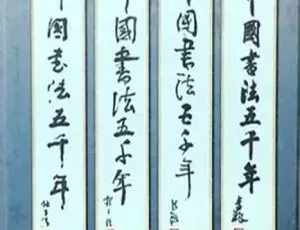 中國書法五千年
中國書法五千年
中國書法五千年
中国書法五千年